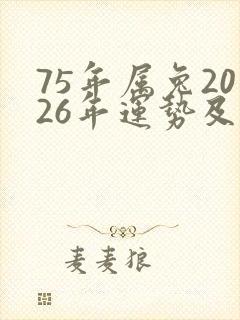 75年属兔20
26年運势及
麦麦狼